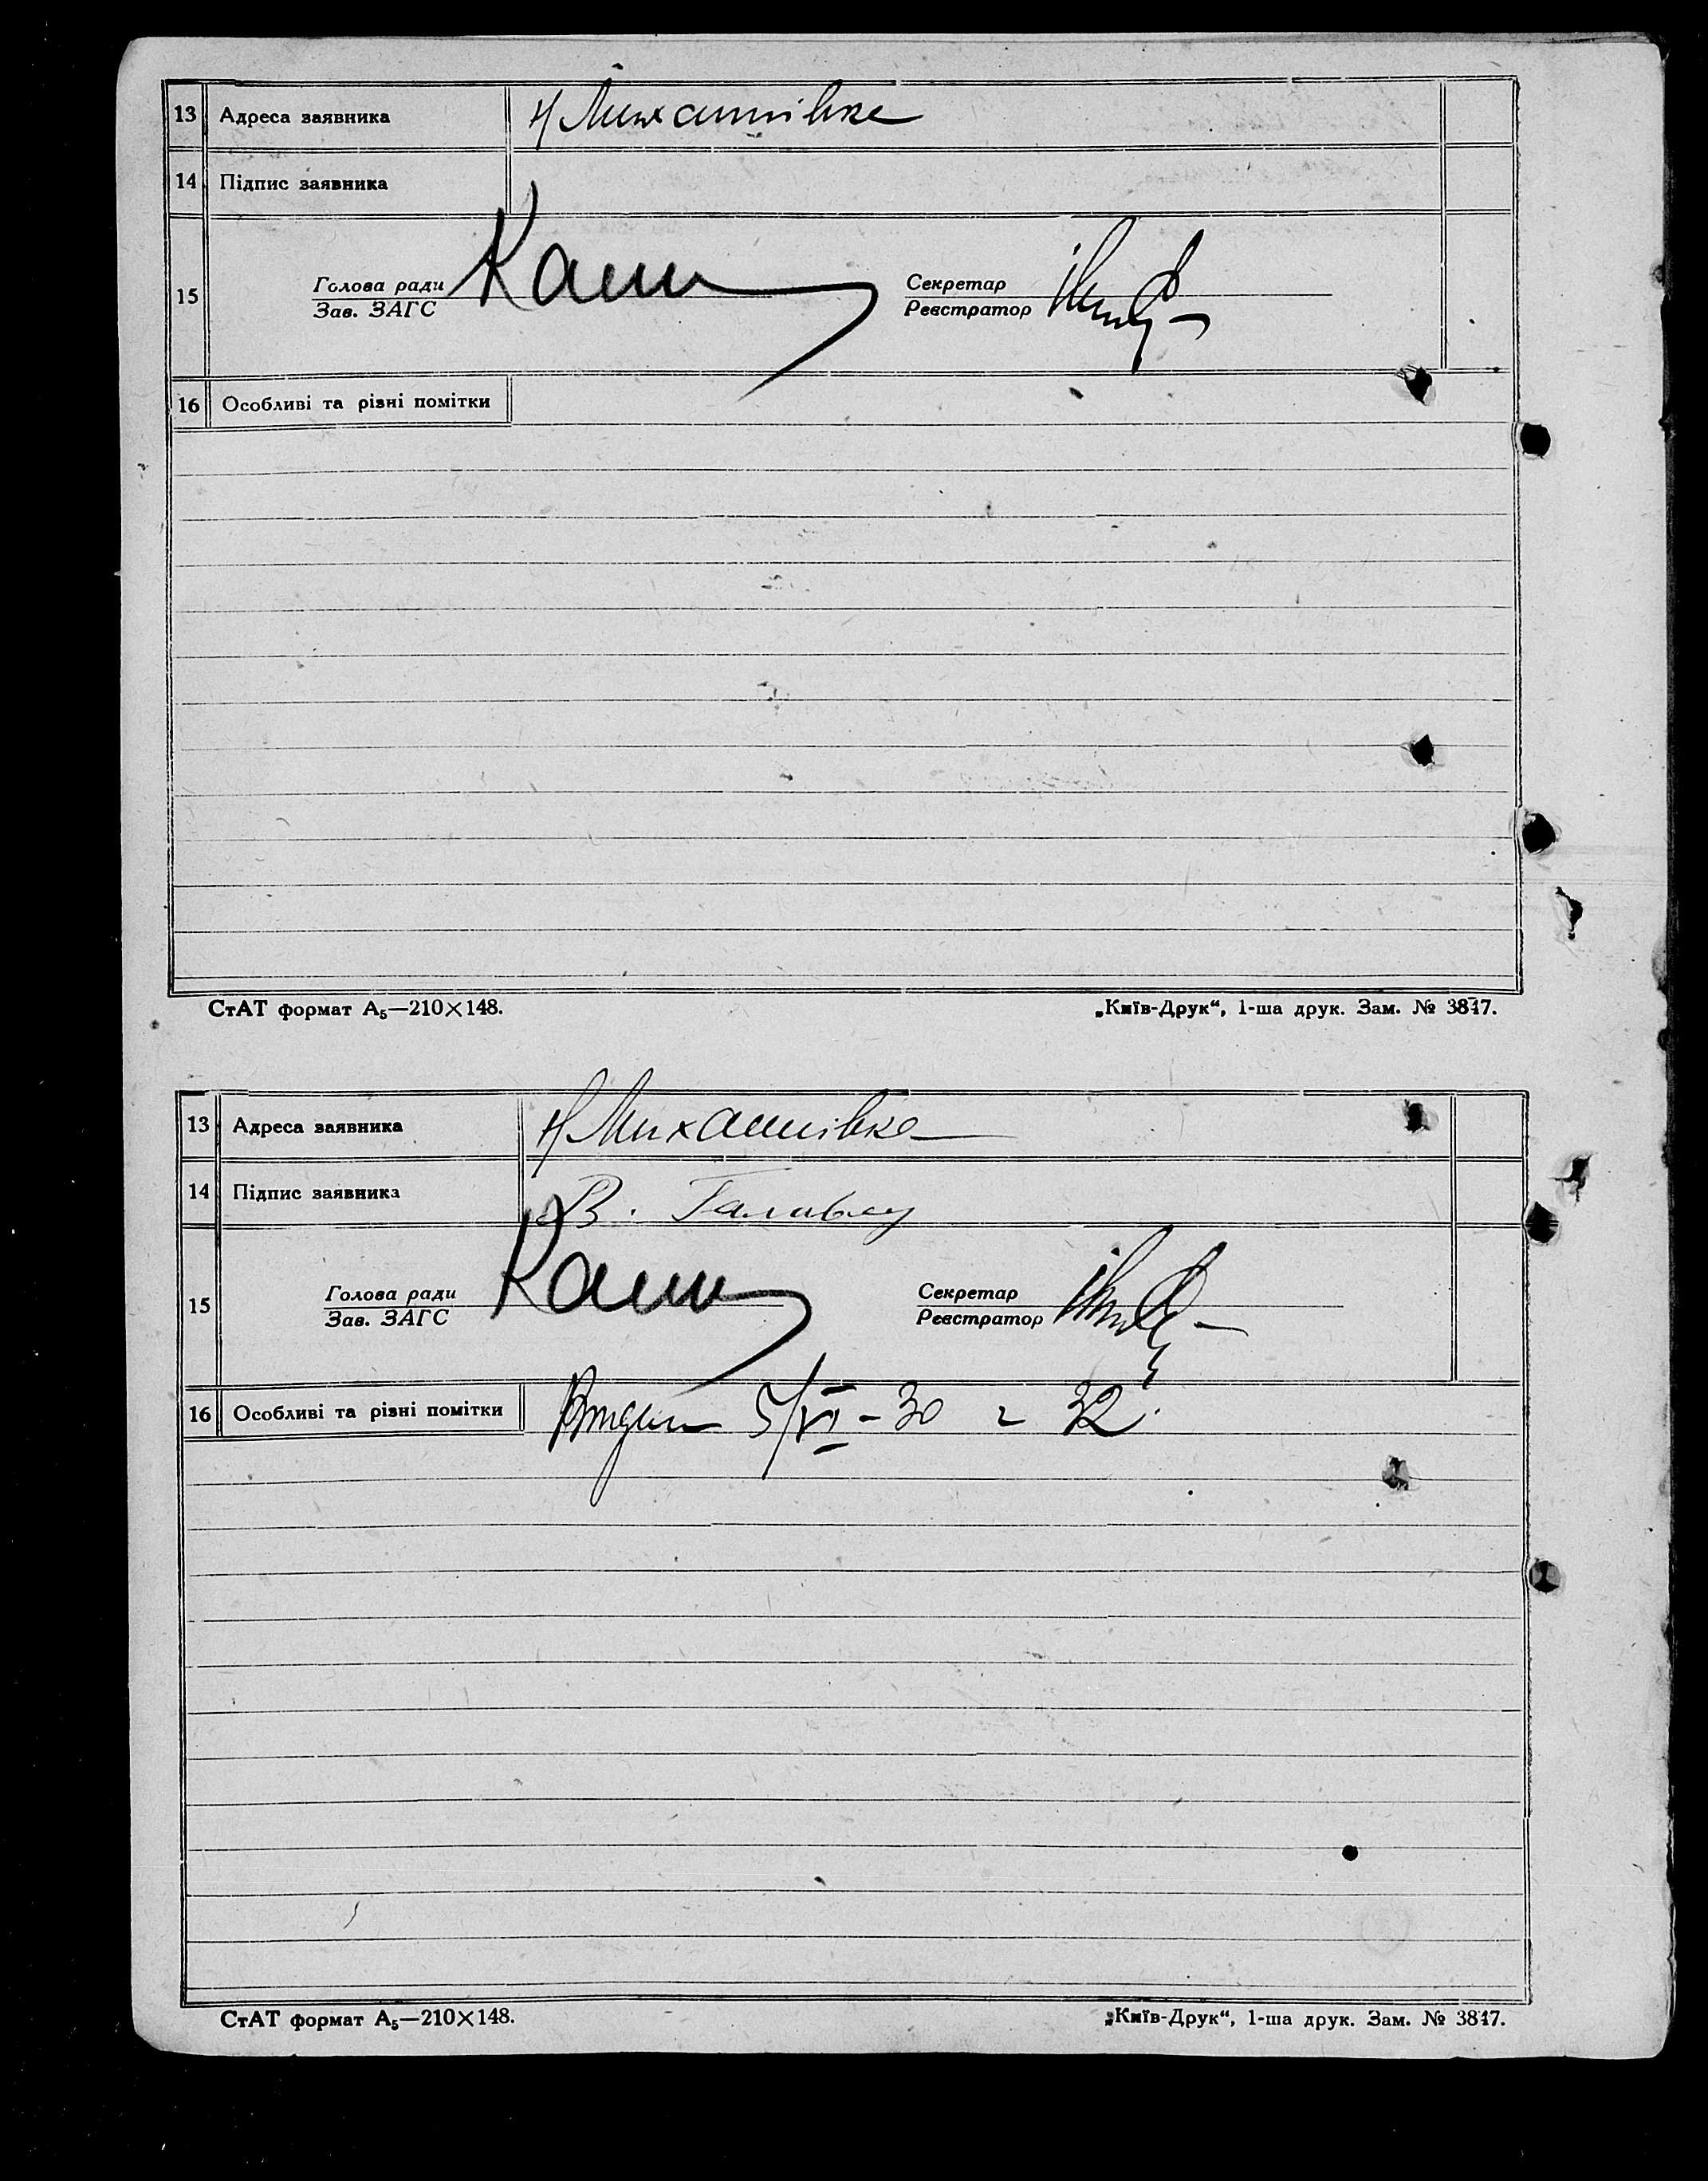 13 Адреса заявника Н Михайлівка
14 Підпис заявника
15 Голова ради Секретар
Зав. ЗАГС Реєстратор
16 Особливі та різні помітки
СтАТ формат А₅—210×148. „Київ-Друк“, 1-ша друк. Зам. № 3847.
13 Адреса заявника Н Михайлівка
14 Підпис заявника В.
15 Голова ради Секретар
Зав. ЗАГС Реєстратор
16 Особливі та різні помітки 5/VI – 30 32
СтАТ формат А₅—210×148. „Київ-Друк“, 1-ша друк. Зам. № 3847.